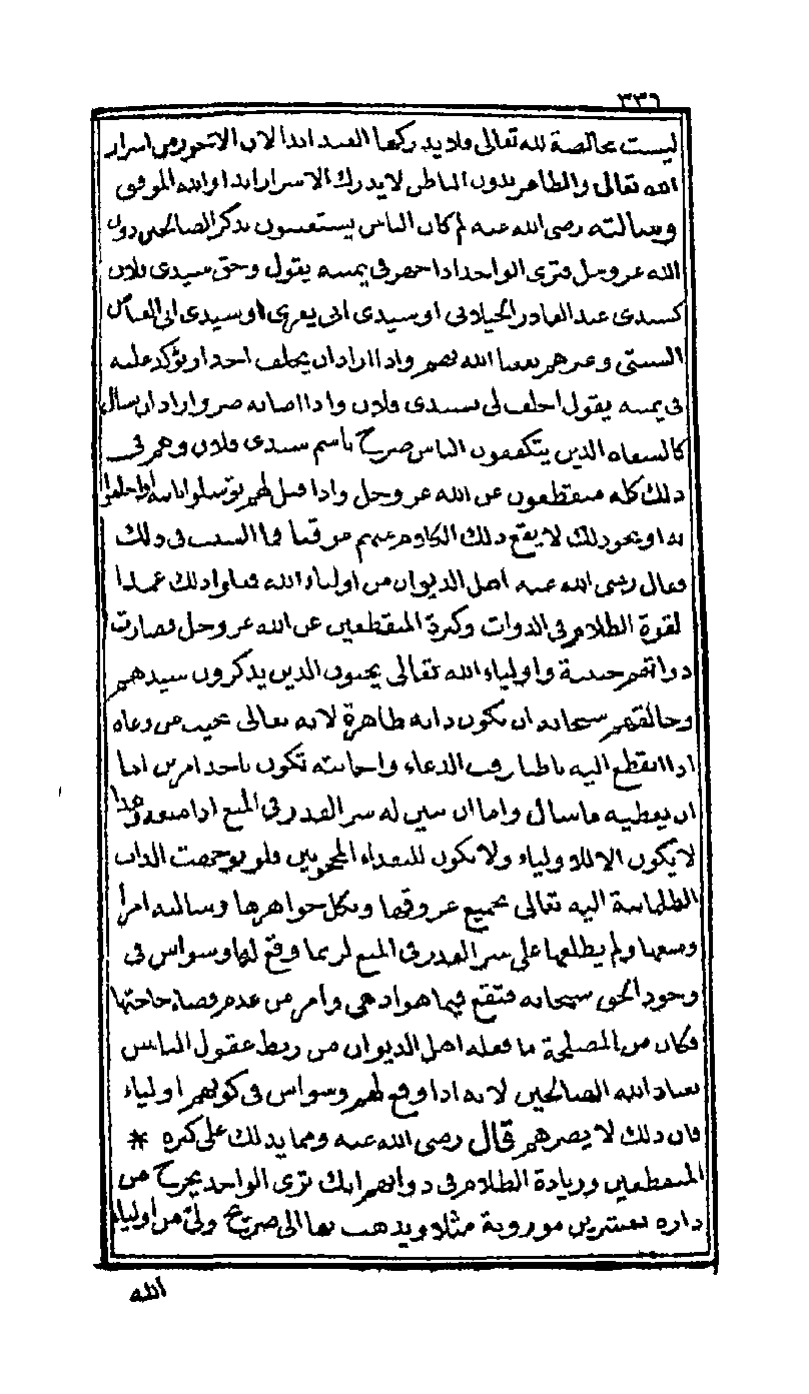 ٣٣٦
ليست بخالصة لله تعالى فلا يدركها العبد ابدا لان الا تحور من اسرار
الله تعالى والظاهر بدون الباطن لا يدرك الاسرار ابدا والله الموفق
وسالته رضى الله عنه لم كان الناس يستغيثون بذكر الصالحين دون
الله عز وجل فترى الواحد اذا جهر فى يمينه يقول وحق سيدى فلان
كسيدى عبد القادر الجيلانى او سيدى ابى يعزى او سيدى ابى العباس
السبتى وغيرهم نفعنا الله بهم واذا اراد ان يحلف احدا ويؤكد عليه
فى يمينه يقول احلف لى بسيدى فلان واذا اصابه ضر واراد ان يسال
كالسعاه الذين يتكففون الناس صرح باسم سيدى فلان وهم فى
ذلك كله منقطعون عن الله عز وجل واذا قيل لهم توسلوا بالله او احلفوا
به او نحو ذلك لا يقع ذلك الكلام منهم موقعا فما السبب فى ذلك
فقال رضى الله عنه اهل الديوان من اولياء الله فعلوا ذلك عمدا
لقوة الظلام فى الذوات وكثرة المنقطعين عن الله عز وجل فصارت
ذواتهم خبيثة واولياء الله تعالى يحبون الذين يذكرون سيدهم
وخالقهم سبحانه ان تكون ذاته طاهرة لانه تعالى يجيب من دعاه
اذا انقطع اليه باطنا وقت الدعاء واجابته تكون باحد امرين اما
ان يعطيه ما سال واما ان يبين له سر القدر فى المنع اذا منعه وهذا
لا يكون الا للاولياء ولا يكون للبعداء المحجوبين فلو توجهت الذات
الظلمانية اليه تعالى بجميع عروقها وبكل جواهرها وسالته امرا
ومنعها ولم يطلعها على سر القدر فى المنع لربما وقع لها وسواس فى
وجود الحق سبحانه فتقع فيما هو ادهى وامر من عدم قضاء حاجتها
فكان من المصلحة ما فعله اهل الديوان من ربط عقول الناس
بعباد الله الصالحين لانه اذا وقع لهم وسواس فى كونهم اولياء
فان ذلك لا يضرهم قال رضى الله عنه ومما يدلك على كثرة *
المنقطعين وزيادة الظلام فى ذواتهم انك ترى الواحد يخرج من
داره بعشرين موزونة مثلا ويذهب بها الى ضريح ولى من اولياء
الله